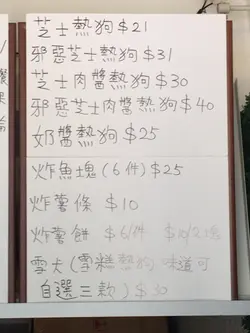 芝士熱狗 $21
邪惡芝士熱狗 $31
芝士肉醬熱狗 $30
邪惡芝士肉醬熱狗 $40
奶醬熱狗 $25
炸魚塊 (6件) $25
炸薯條 $10
炸薯餅 $6/件 $10/2塊
雪犬 (雪糕熱狗) 味道可
自選三款) $30